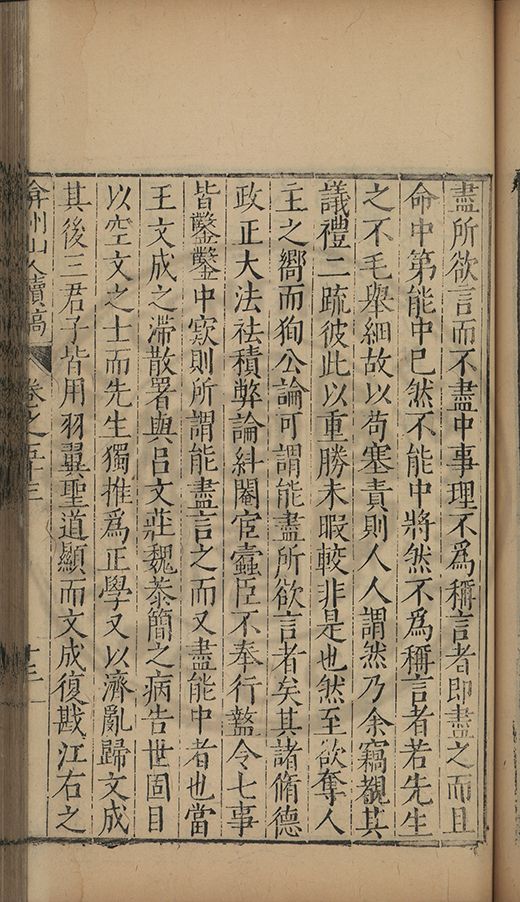 盡所欲言而不盡中事理不爲稱言者即盡之而且
命中第能中已然不能中將然不爲稱言者若先生
之不毛舉細故以苟塞責則人人謂然乃余竊覩其
議禮二疏彼此以重勝未暇較非是也然至欲奪人
主之嚮而狥公論可謂能盡所欲言者矣其諸脩德
政正大法祛積弊論糾閹宦蠹臣不奉行盭令七事
皆鑿鑿中窽則所謂能盡言之而又盡能中者也當
王文成之滯散署與呂文莊魏恭簡之病告世固目
以空文之士而先生獨推爲正學又以濟亂歸文成
其後三君子皆用羽翼聖道顯而文成復戡江右之
弇州山人續稿 卷之五十三 十三